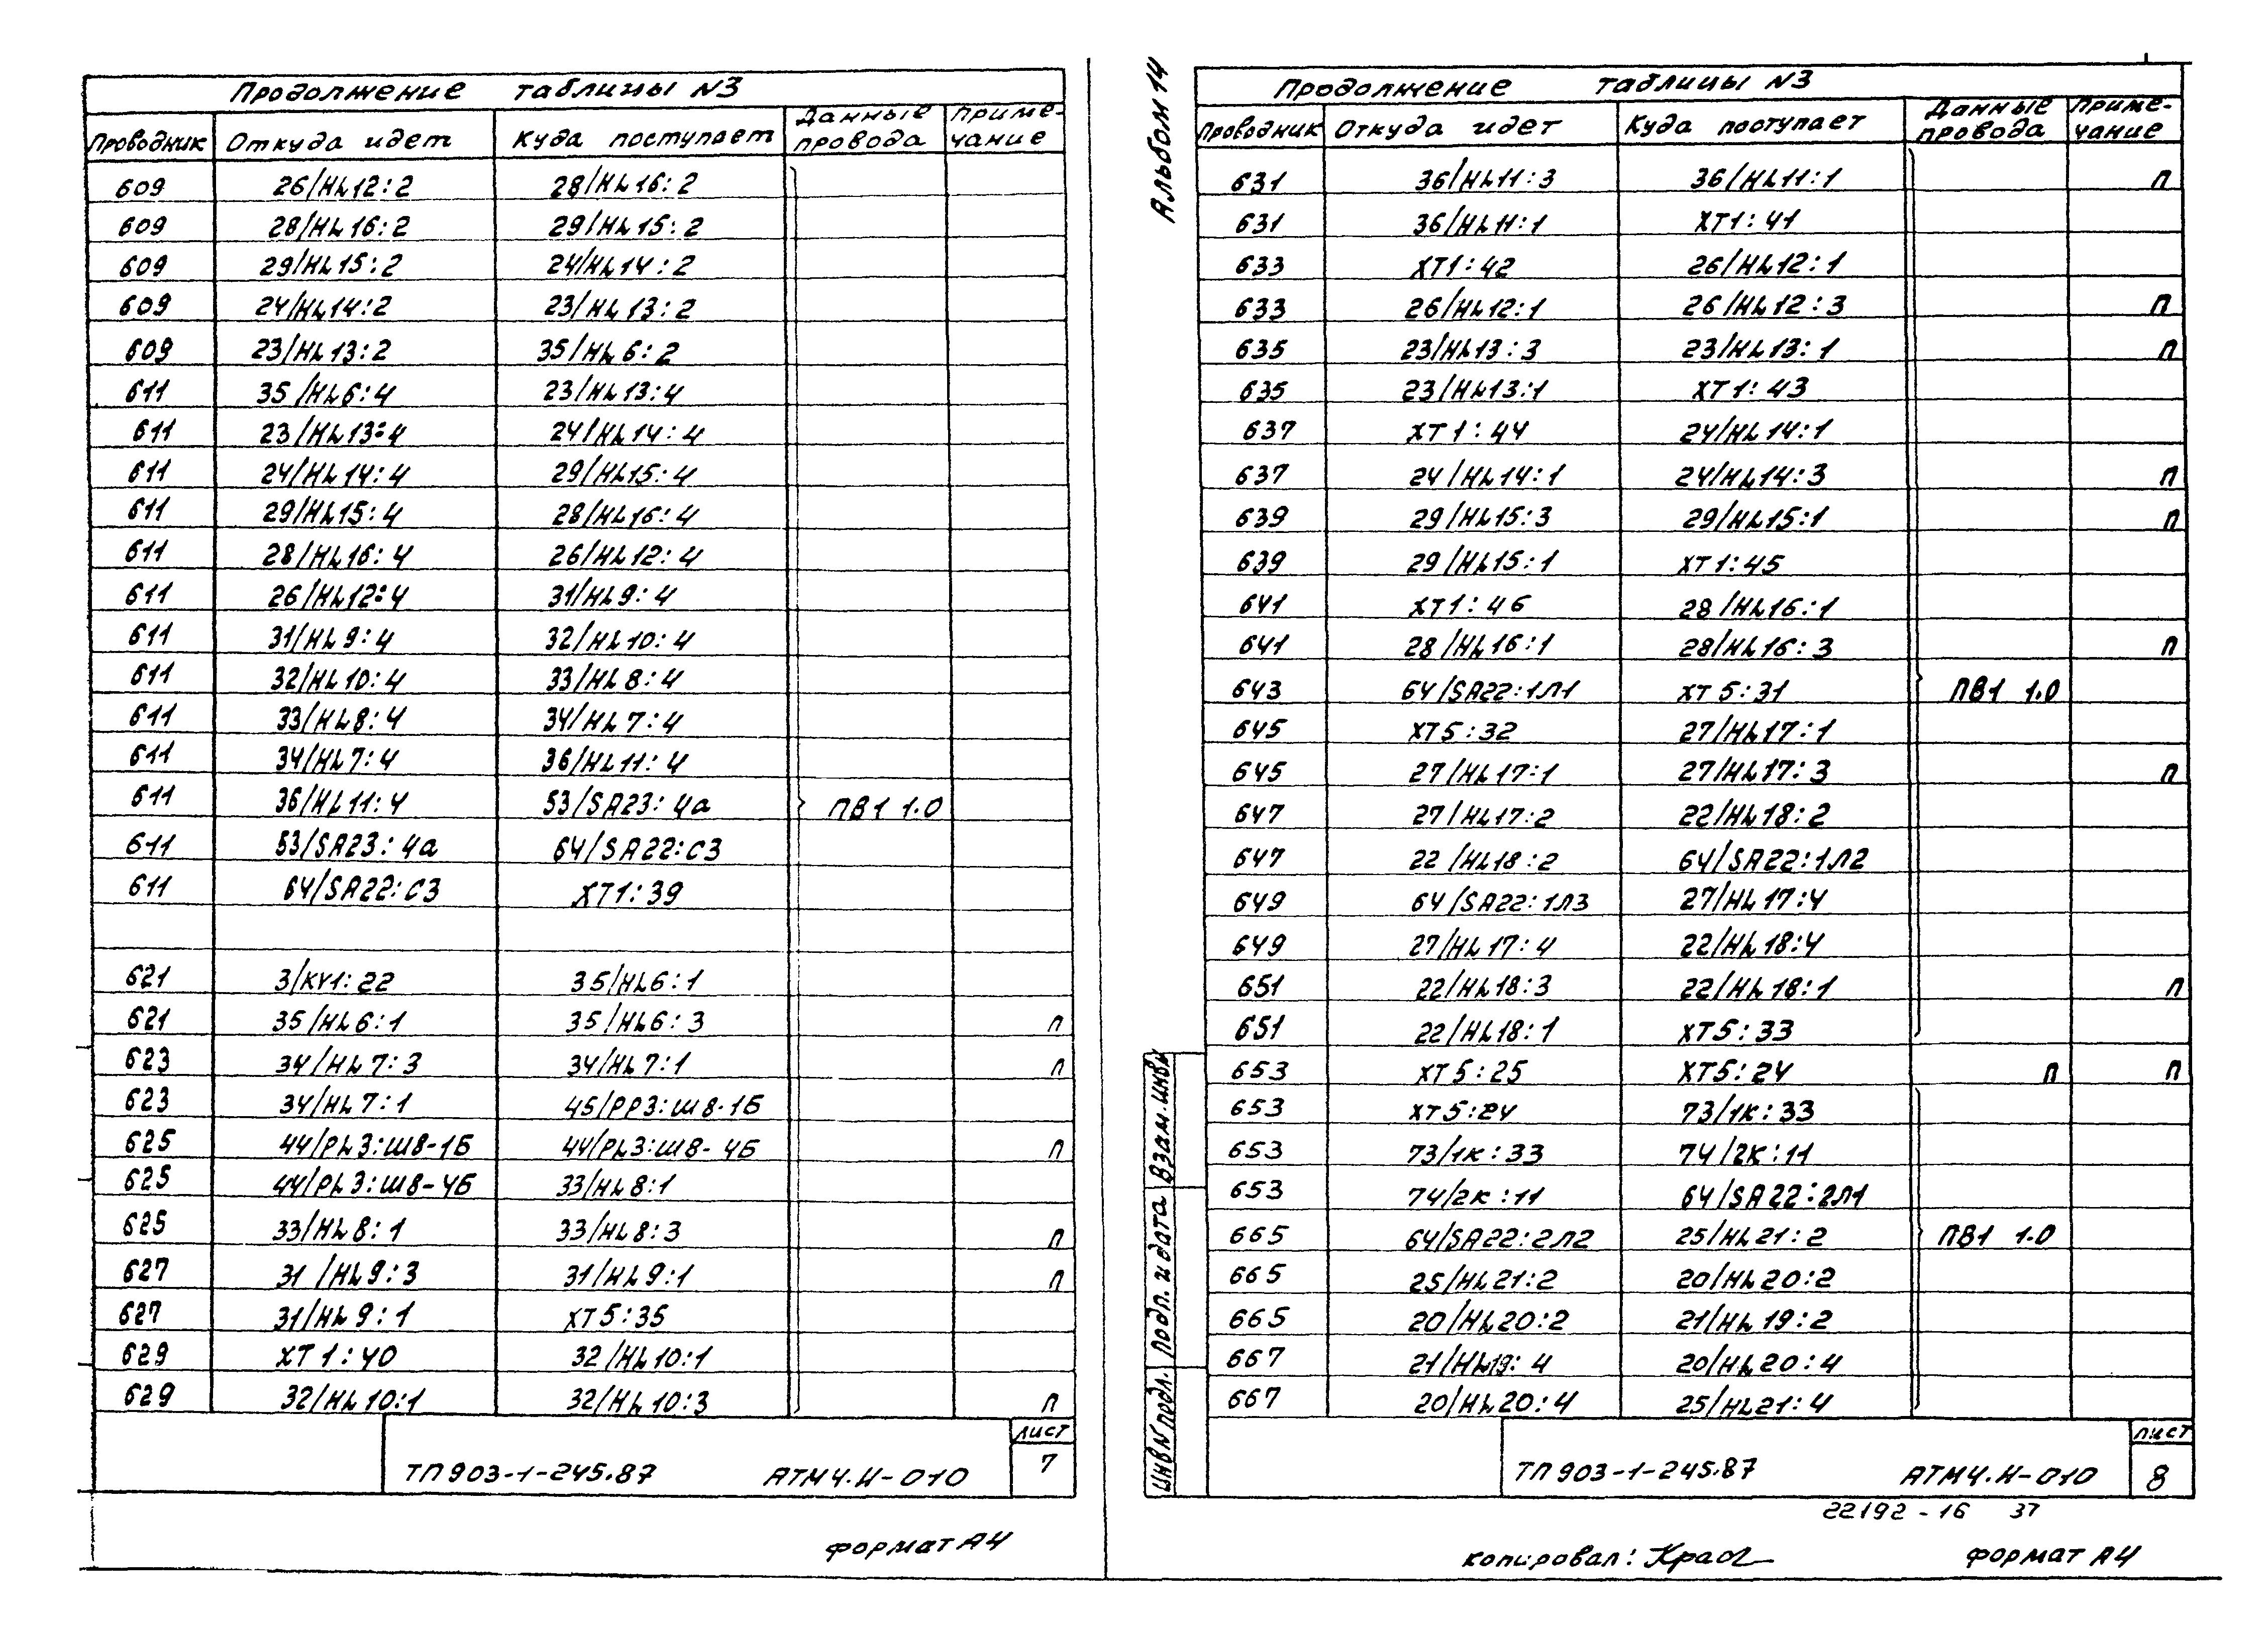 Продолжение таблицы N3
Проводник Откуда идет Куда поступает Данные провода Приме-чание
609 26/HL12:2 28/HL16:2
609 28/HL16:2 29/HL15:2
609 29/HL15:2 24/HL14:2
609 24/HL14:2 23/HL13:2
609 23/HL13:2 35/HL6:2
611 35/HL6:4 23/HL13:4
611 23/HL13:4 24/HL14:4
611 24/HL14:4 29/HL15:4
611 29/HL15:4 28/HL16:4
611 28/HL16:4 26/HL12:4
611 26/HL12:4 31/HL9:4
611 31/HL9:4 32/HL10:4
611 32/HL10:4 33/HL8:4
611 33/HL8:4 34/HL7:4
611 34/HL7:4 36/HL11:4
611 36/HL11:4 53/SA23:4а ПВ1 1.0
611 53/SA23:4а 64/SA22:С3
611 64/SA22:С3 XT1:39
621 3/KY1:22 35/HL6:1
621 35/HL6:1 35/HL6:3 п
623 34/HL7:3 34/HL7:1 п
623 34/HL7:1 45/PP3:Ш8-1Б
625 44/PL3:Ш8-1Б 44/PL3:Ш8-4Б п
625 44/PL3:Ш8-4Б 33/HL8:1
625 33/HL8:1 33/HL8:3 п
627 31/HL9:3 31/HL9:1 п
627 31/HL9:1 XT5:35
629 XT1:40 32/HL10:1
629 32/HL10:1 32/HL10:3 п
ТП903-1-245.87 АТМ4.И-010
лист
7
формат А4
Альбом 14
Продолжение таблицы N3
Проводник Откуда идет Куда поступает Данные провода Приме-чание
631 36/HL11:3 36/HL11:1 п
631 36/HL11:1 XT1:41
633 XT1:42 26/HL12:1
633 26/HL12:1 26/HL12:3 п
635 23/HL13:3 23/HL13:1 п
635 23/HL13:1 XT1:43
637 XT1:44 24/HL14:1
637 24/HL14:1 24/HL14:3 п
639 29/HL15:3 29/HL15:1 п
639 29/HL15:1 XT1:45
641 XT1:46 28/HL16:1
641 28/HL16:1 28/HL16:3 п
643 64/SA22:1Л1 XT5:31 ПВ1 1.0
645 XT5:32 27/HL17:1
645 27/HL17:1 27/HL17:3 п
647 27/HL17:2 22/HL18:2
647 22/HL18:2 64/SA22:1Л2
649 64/SA22:1Л3 27/HL17:4
649 27/HL17:4 22/HL18:4
651 22/HL18:3 22/HL18:1 п
651 22/HL18:1 XT5:33
653 XT5:25 XT5:24 п п
653 XT5:24 73/1К:33
653 73/1К:33 74/2К:11
653 74/2К:11 64/SA22:2Л1
665 64/SA22:2Л2 25/HL21:2 ПВ1 1.0
665 25/HL21:2 20/HL20:2
665 20/HL20:2 21/HL19:2
667 21/HL19:4 20/HL20:4
667 20/HL20:4 25/HL21:4
Инв N подл. Подп. и дата Взам. инв N
ТП903-1-245.87 АТМ4.И-010
лист
8
22192-16 37
копировал: формат А4